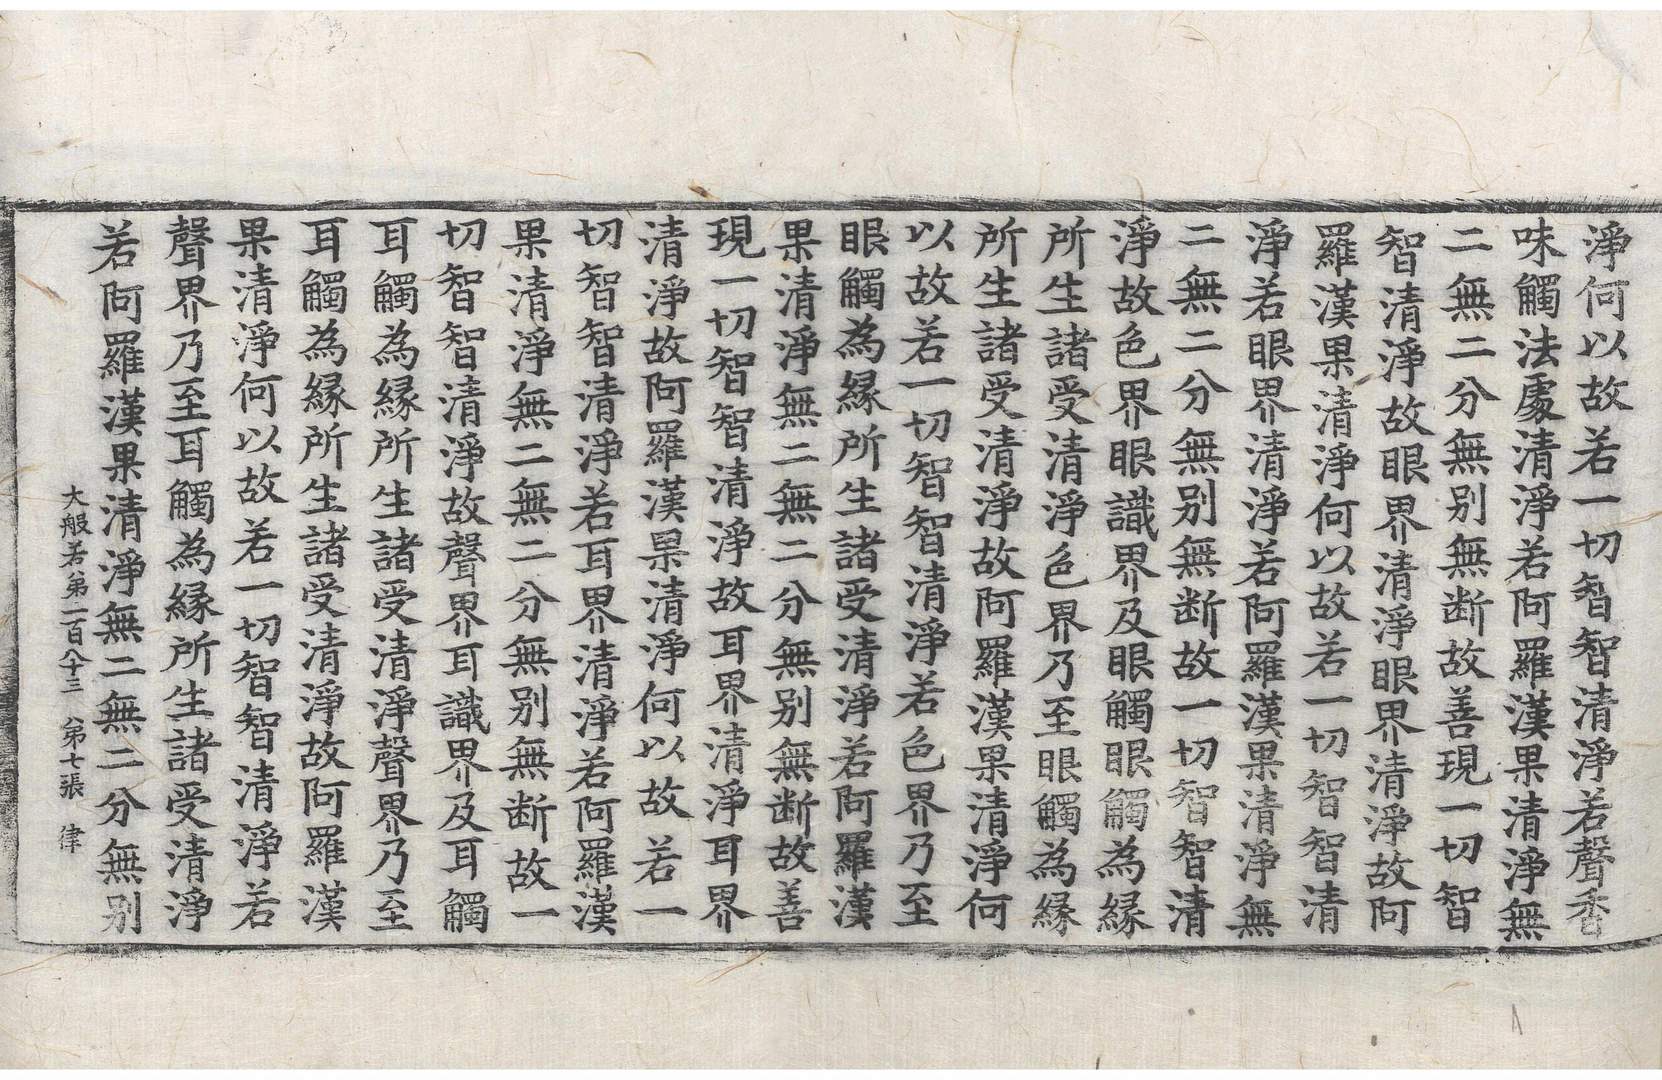 淨何以故若一切智智清淨若聲香
味觸法處清淨若阿羅漢果清淨無
二無二分無别無断故善現一切智
智清淨故眼界清淨眼界清淨故阿
羅漢果清淨何以故若一切智智清
淨若眼界清淨若阿羅漢果清淨無
二無二分無别無断故一切智智清
淨故色界眼識界及眼觸眼觸為縁
所生諸受清淨色界乃至眼觸為縁
所生諸受清淨故阿羅漢果清淨何
以故若一切智智清淨若色界乃至
眼觸為縁所生諸受清淨若阿羅漢
果清淨無二無二分無别無断故善
現一切智智清淨故耳界清淨耳界
清淨故阿羅漢果清淨何以故若一
切智智清淨若耳界清淨若阿羅漢
果清淨無二無二分無别無断故一
切智智清淨故聲界耳識界及耳觸
耳觸為縁所生諸受清淨聲界乃至
耳觸為縁所生諸受清淨故阿羅漢
果清淨何以故若一切智智清淨若
聲界乃至耳觸為縁所生諸受清淨
若阿羅漢果清淨無二無二分無别
大般若第一百八十三 第七張 律